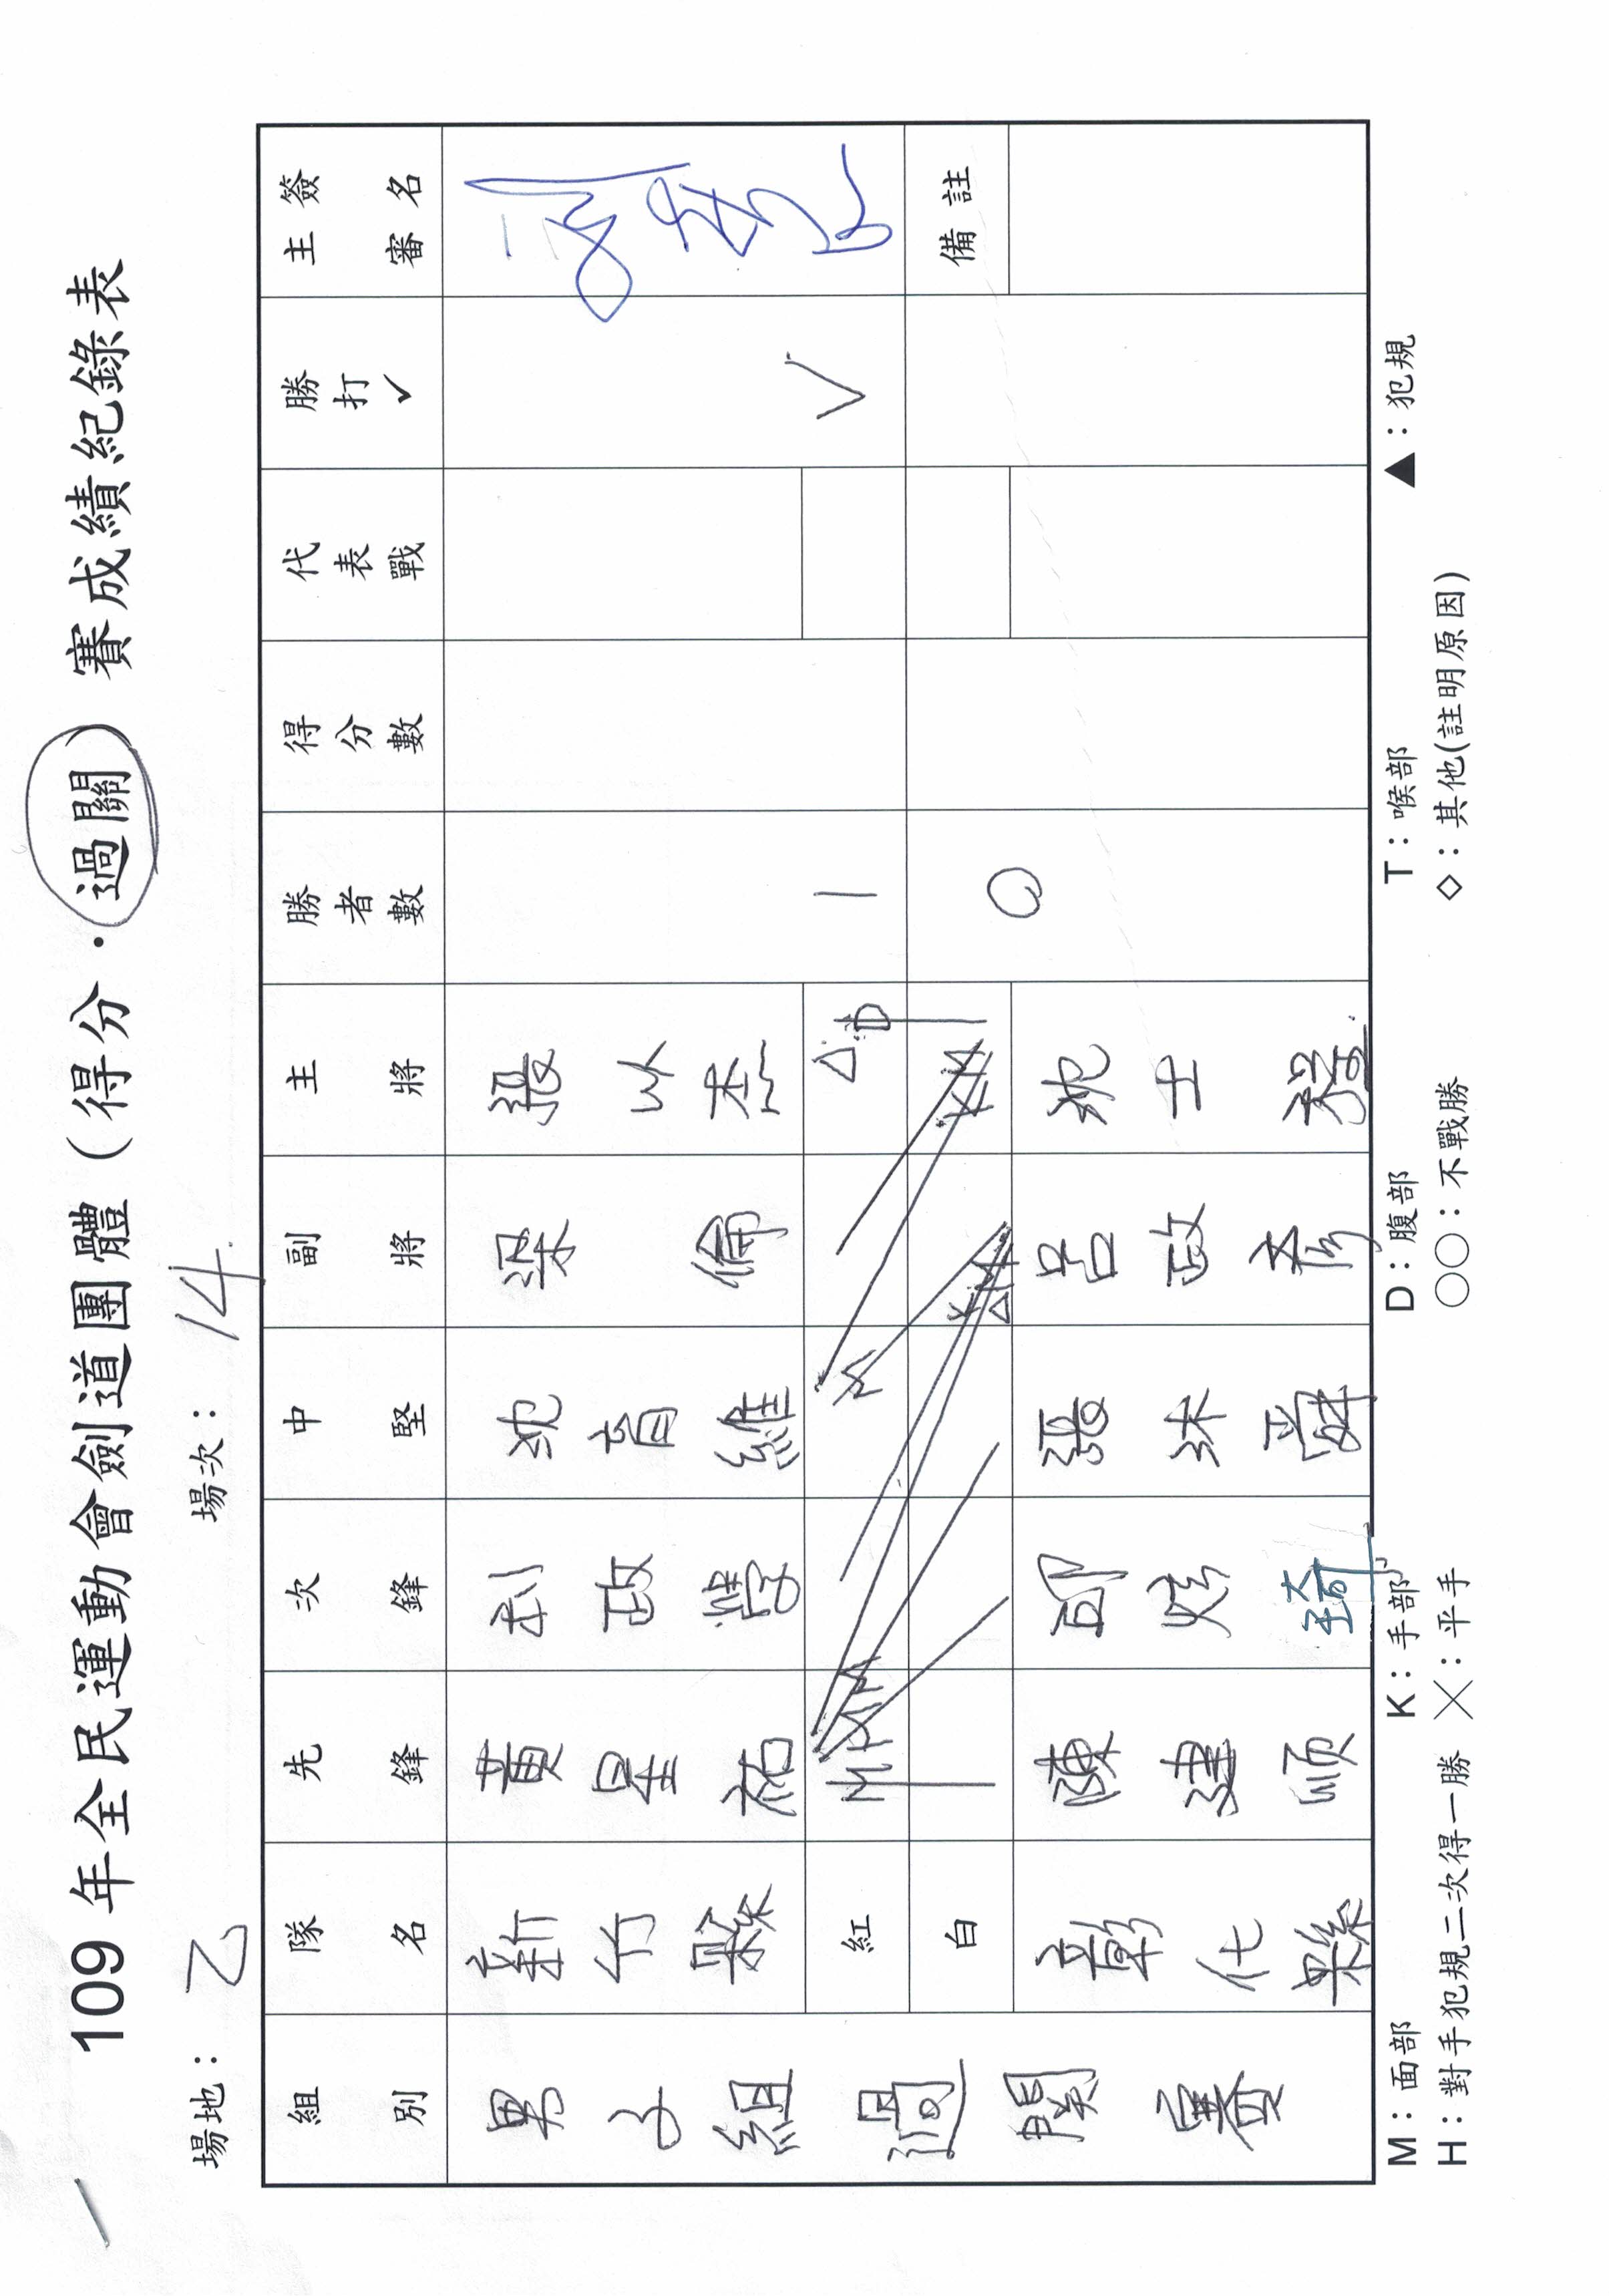 109 年全民運動會劍道團體（得分 · 過關）賽成績紀錄表
場地： 乙 場次： 14
組別 隊名 先鋒 次鋒 中堅 副將 主將 勝者數 得分數 代表戰 勝打✓ 主審簽名
男子組過關賽 新竹縣 黃星祐 政學 沈育維 梁倫 張以杰
紅 M M Δ D 1 ✓
白 K M Δ K M 0 備註
彰化縣 陳建順 邱炫琦 張沐舜 呂政彥 沈士
M：面部 K：手部 D：腹部 T：喉部 ▲：犯規
H：對手犯規二次得一勝 ╳：平手 〇〇：不戰勝 ◇：其他(註明原因)